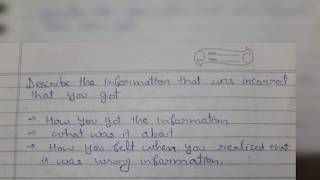 Describe the information that was incorrect
that you got
→ How you got the information
→ what was it about
→ How you felt when you realised that
it was wrong information.